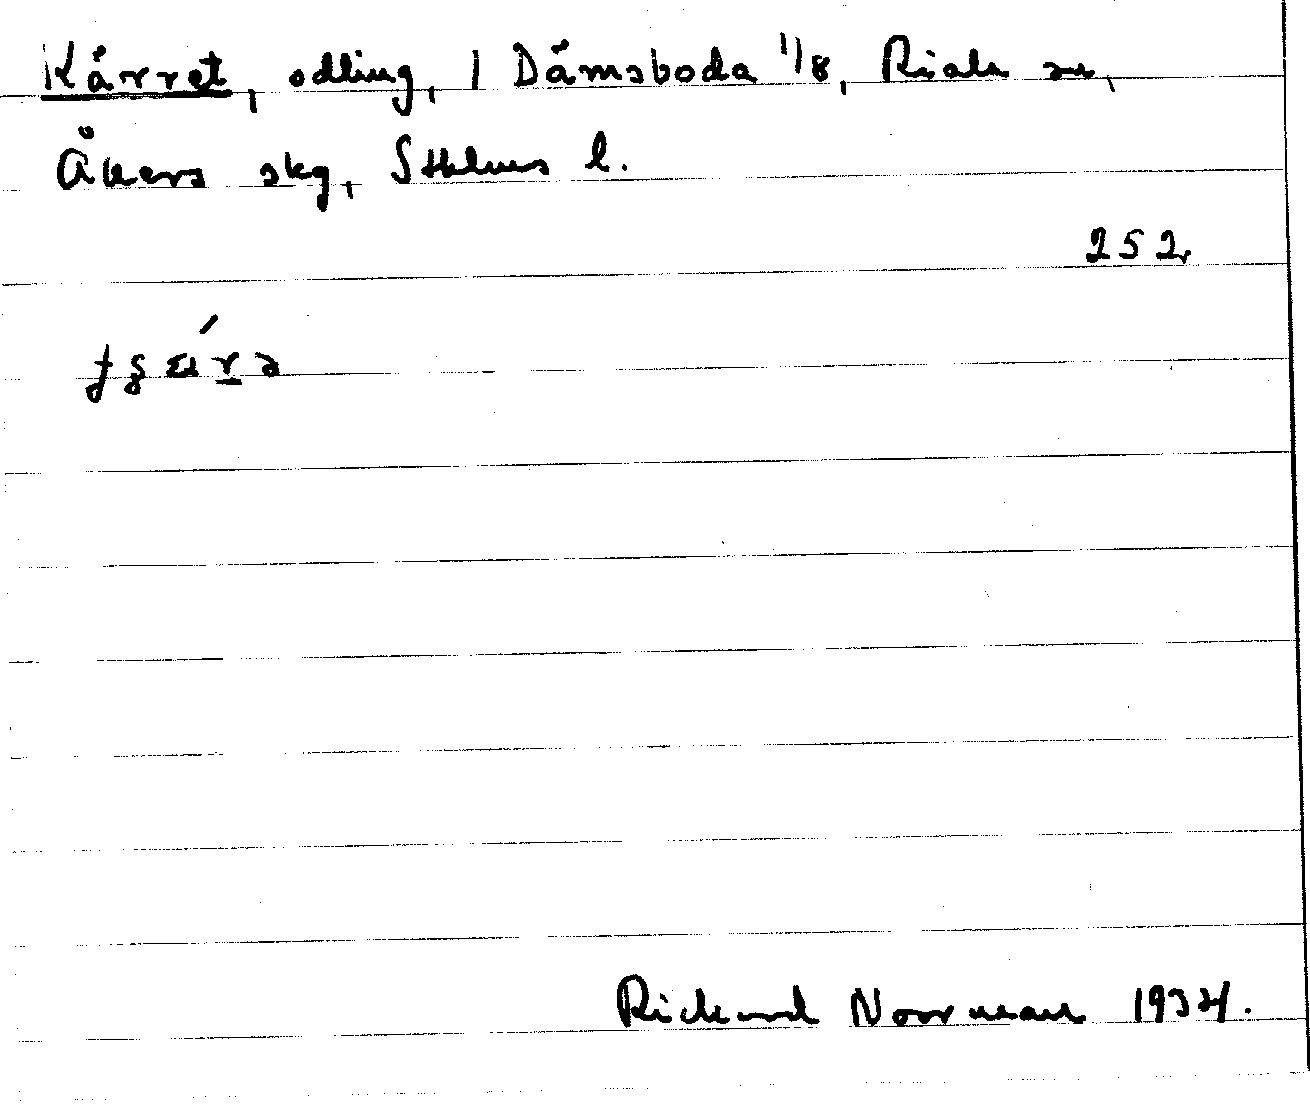 Kärret, odling, 1 Dämsboda 1/8, Riala sn,
Åkers skg, Sthlms l.
252
Rickard Norrman 1934.